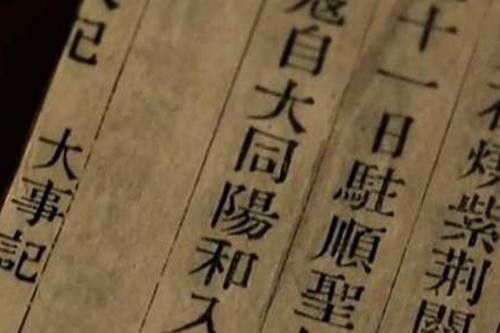 燒紫荊關
十一日駐順聖
寇自大同陽和入
記 大事記